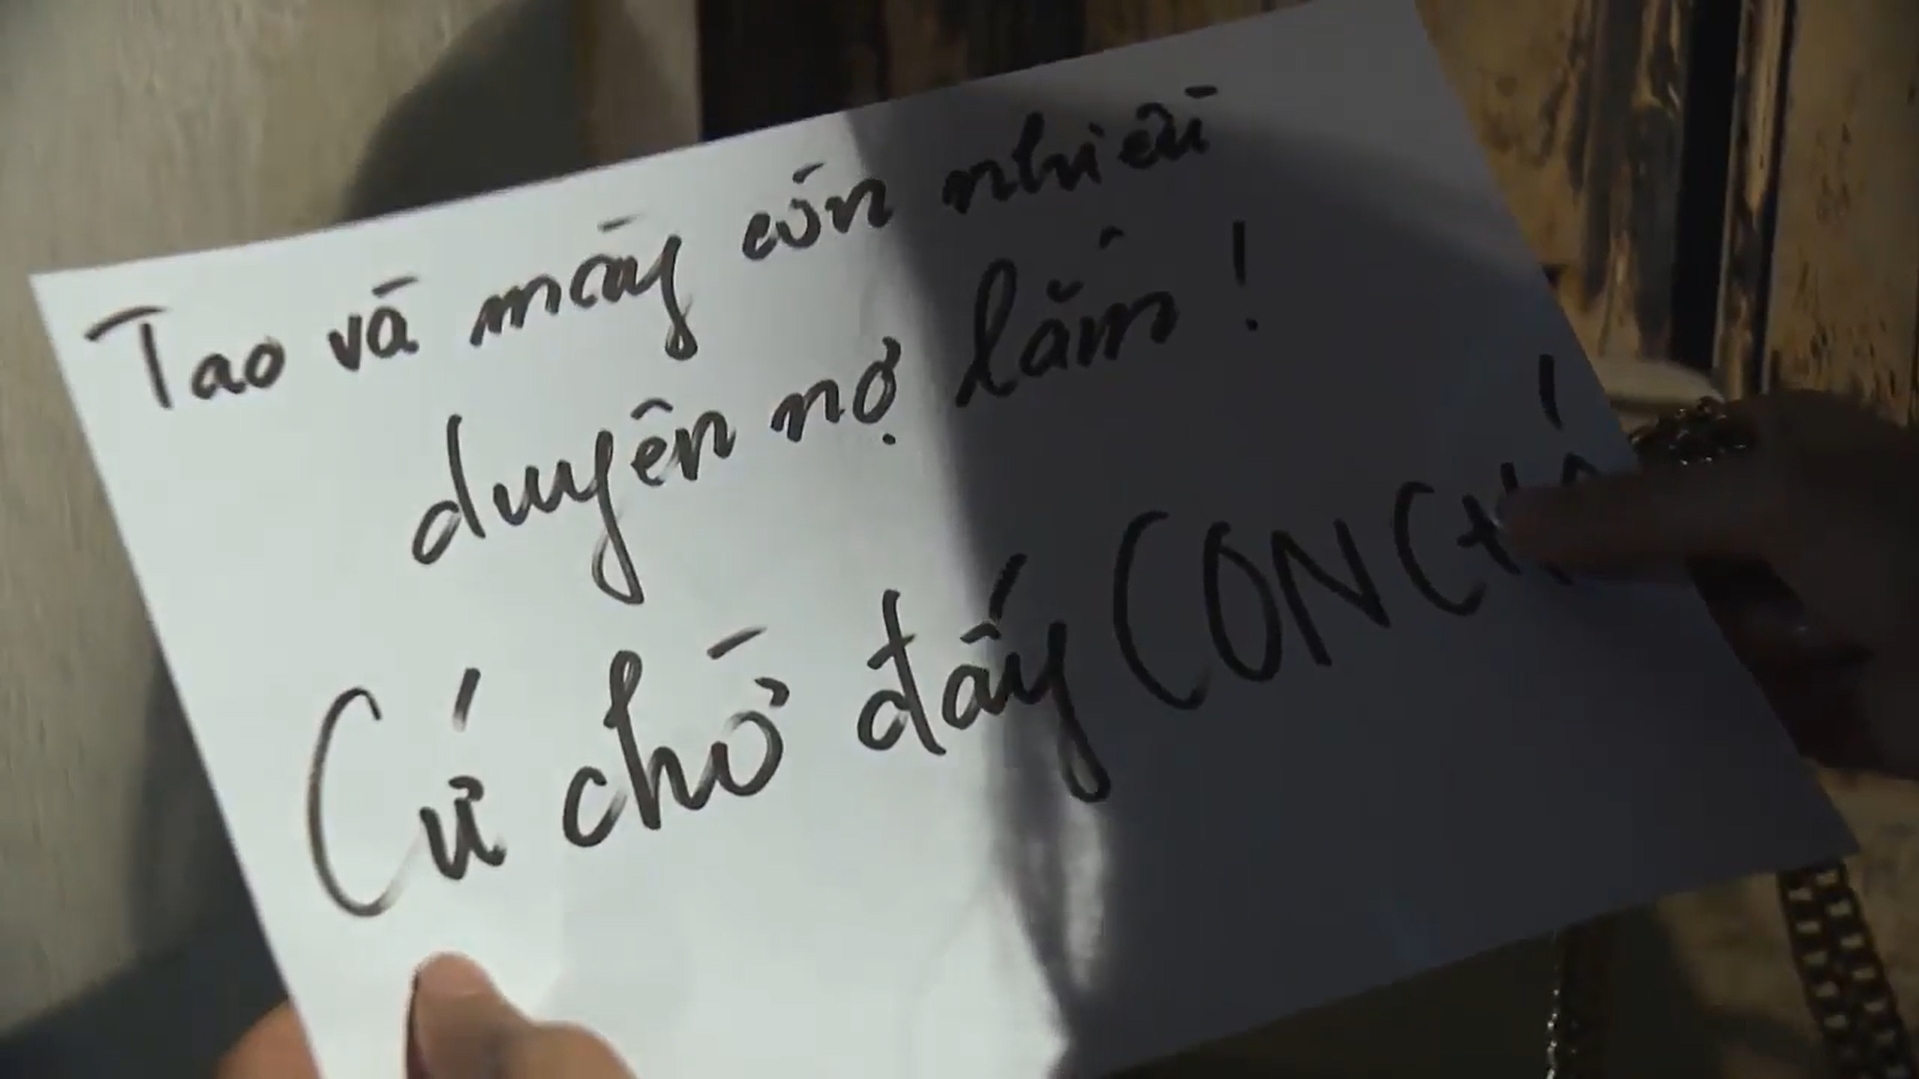 Tao và mày còn nhiều
duyên nợ lắm!
Cứ chờ đấy CON CHÓ